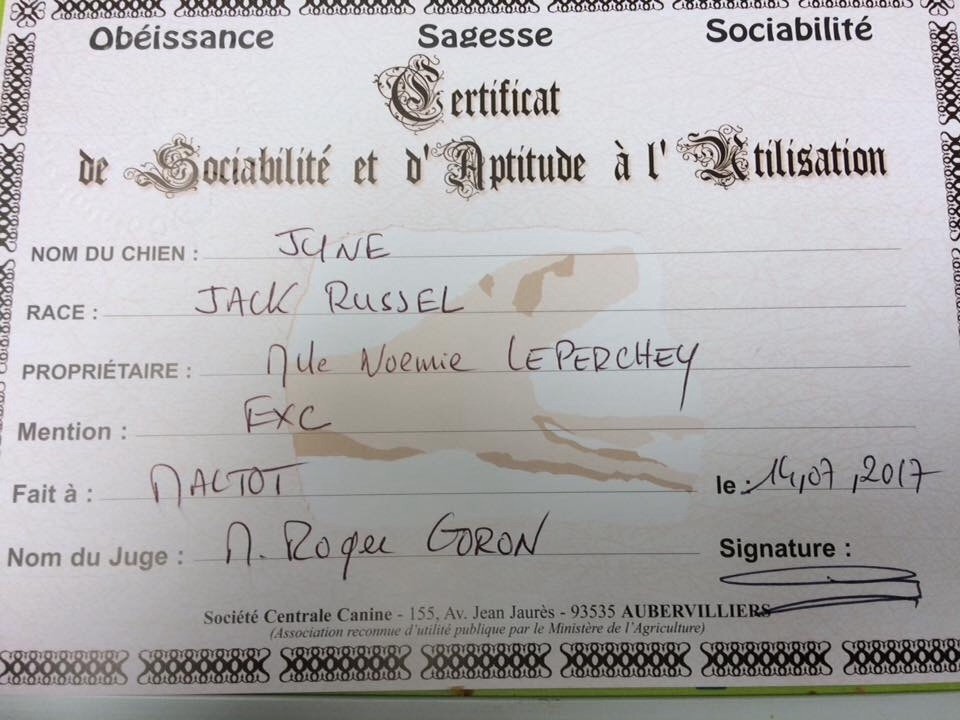 Obéissance Sagesse Sociabilité
Certificat
de Sociabilité et d'Aptitude à l'Utilisation
NOM DU CHIEN : JUNE
RACE : JACK RUSSEL
PROPRIÉTAIRE : Mlle Noemie LEPERCHEY
Mention : EXC
Fait à : MALTOT le : 14,07,2017
Nom du Juge : M. Roger GORON Signature :
Société Centrale Canine - 155, Av. Jean Jaurès - 93535 AUBERVILLIERS
(Association reconnue d'utilité publique par le Ministère de l'Agriculture)